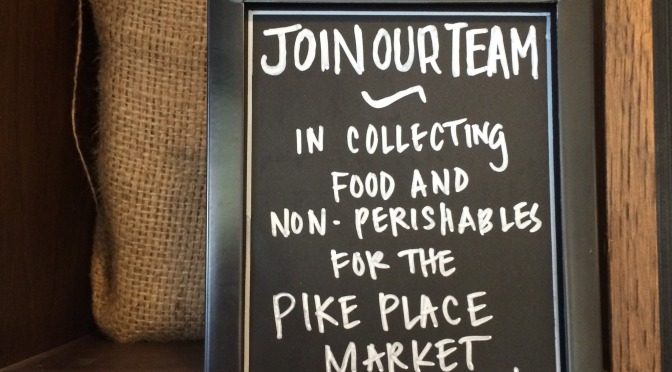 JOIN OUR TEAM
IN COLLECTING
FOOD AND
NON-PERISHABLES
FOR THE
PIKE PLACE
MARKET